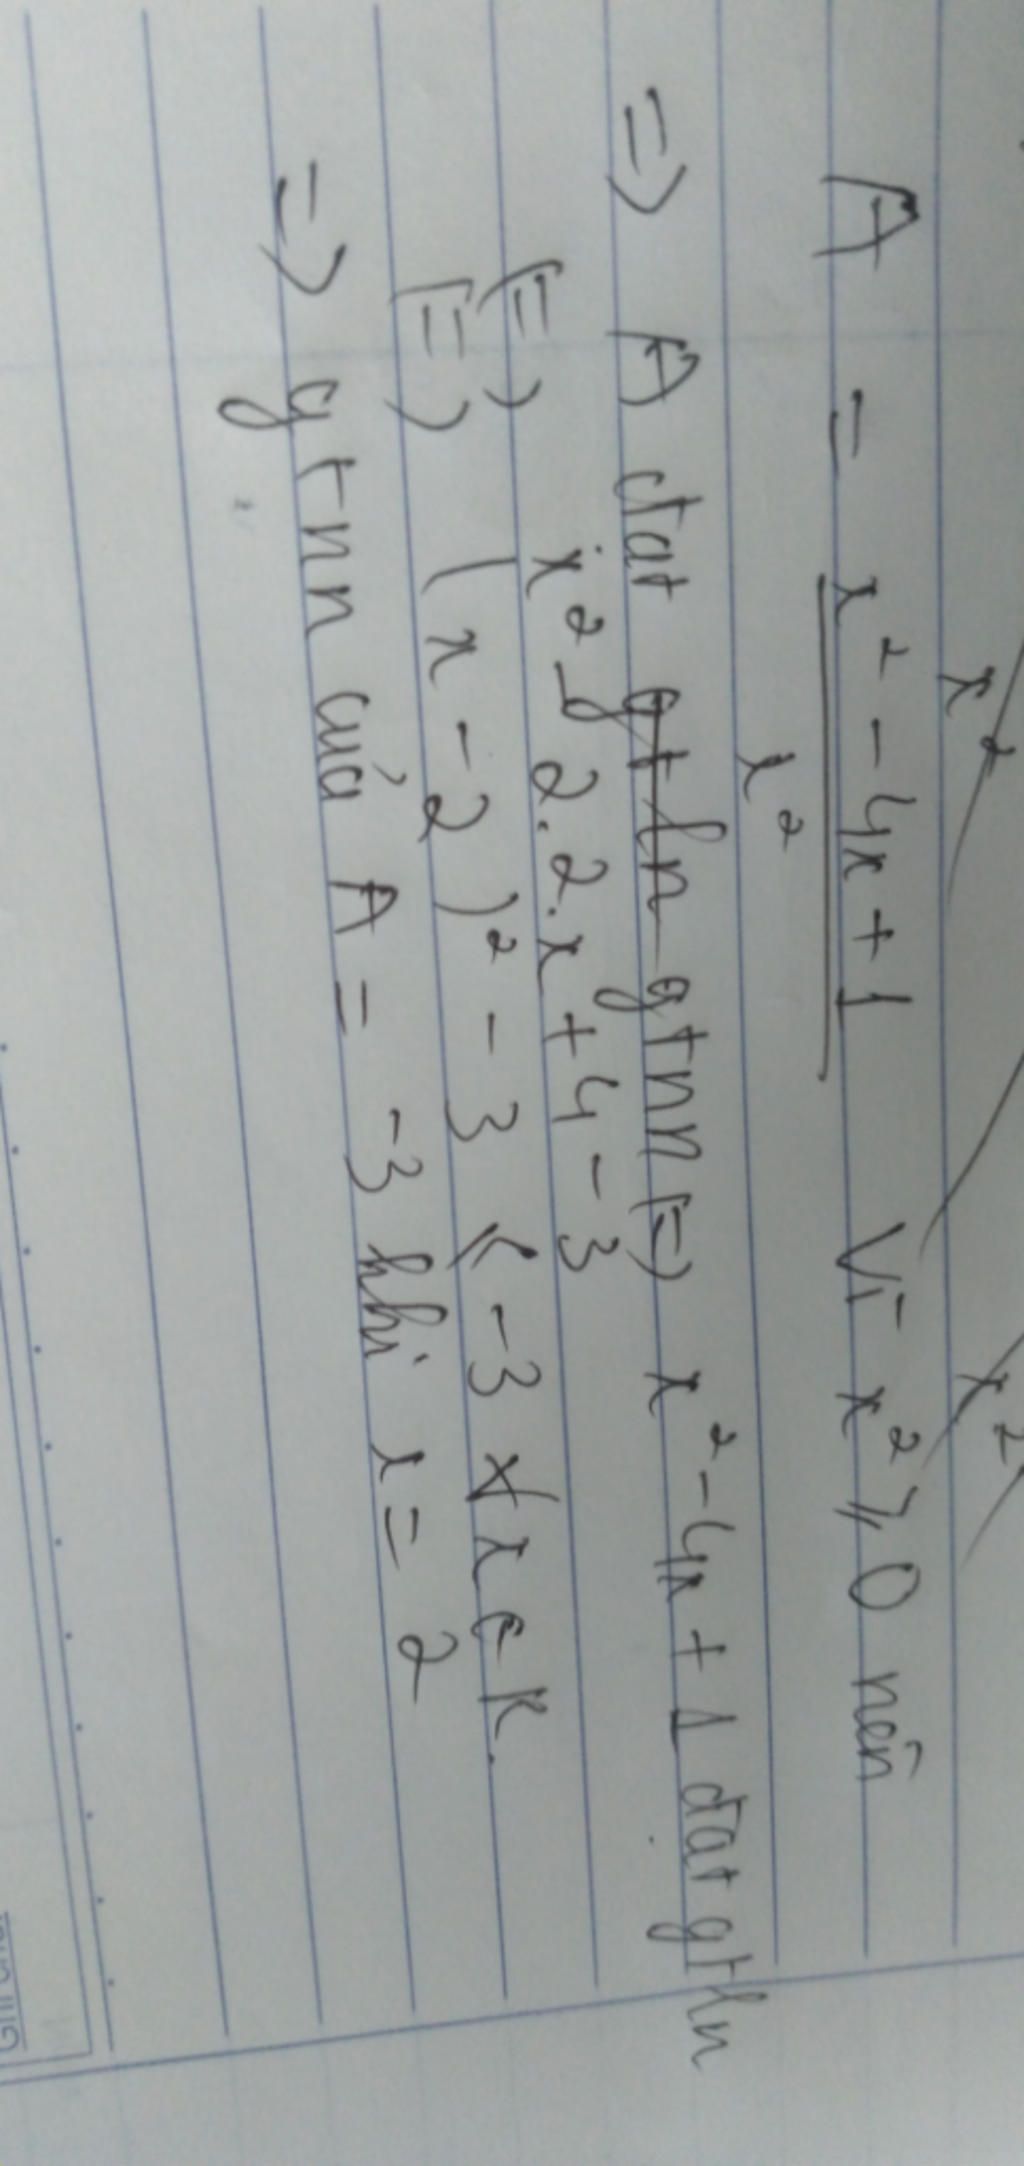 x² x²
A = x² - 4x + 1 / x² Vì x² ⩾ 0 nên
=> A đạt gtln gtnn (=) x² - 4x + 1 đạt gtln
(=) x² - 2.2.x + 4 - 3
(=) (x - 2)² - 3 ⩽ -3 ∀x ∈ R.
=> gtnn của A = -3 khi x = 2
Ghi chú: